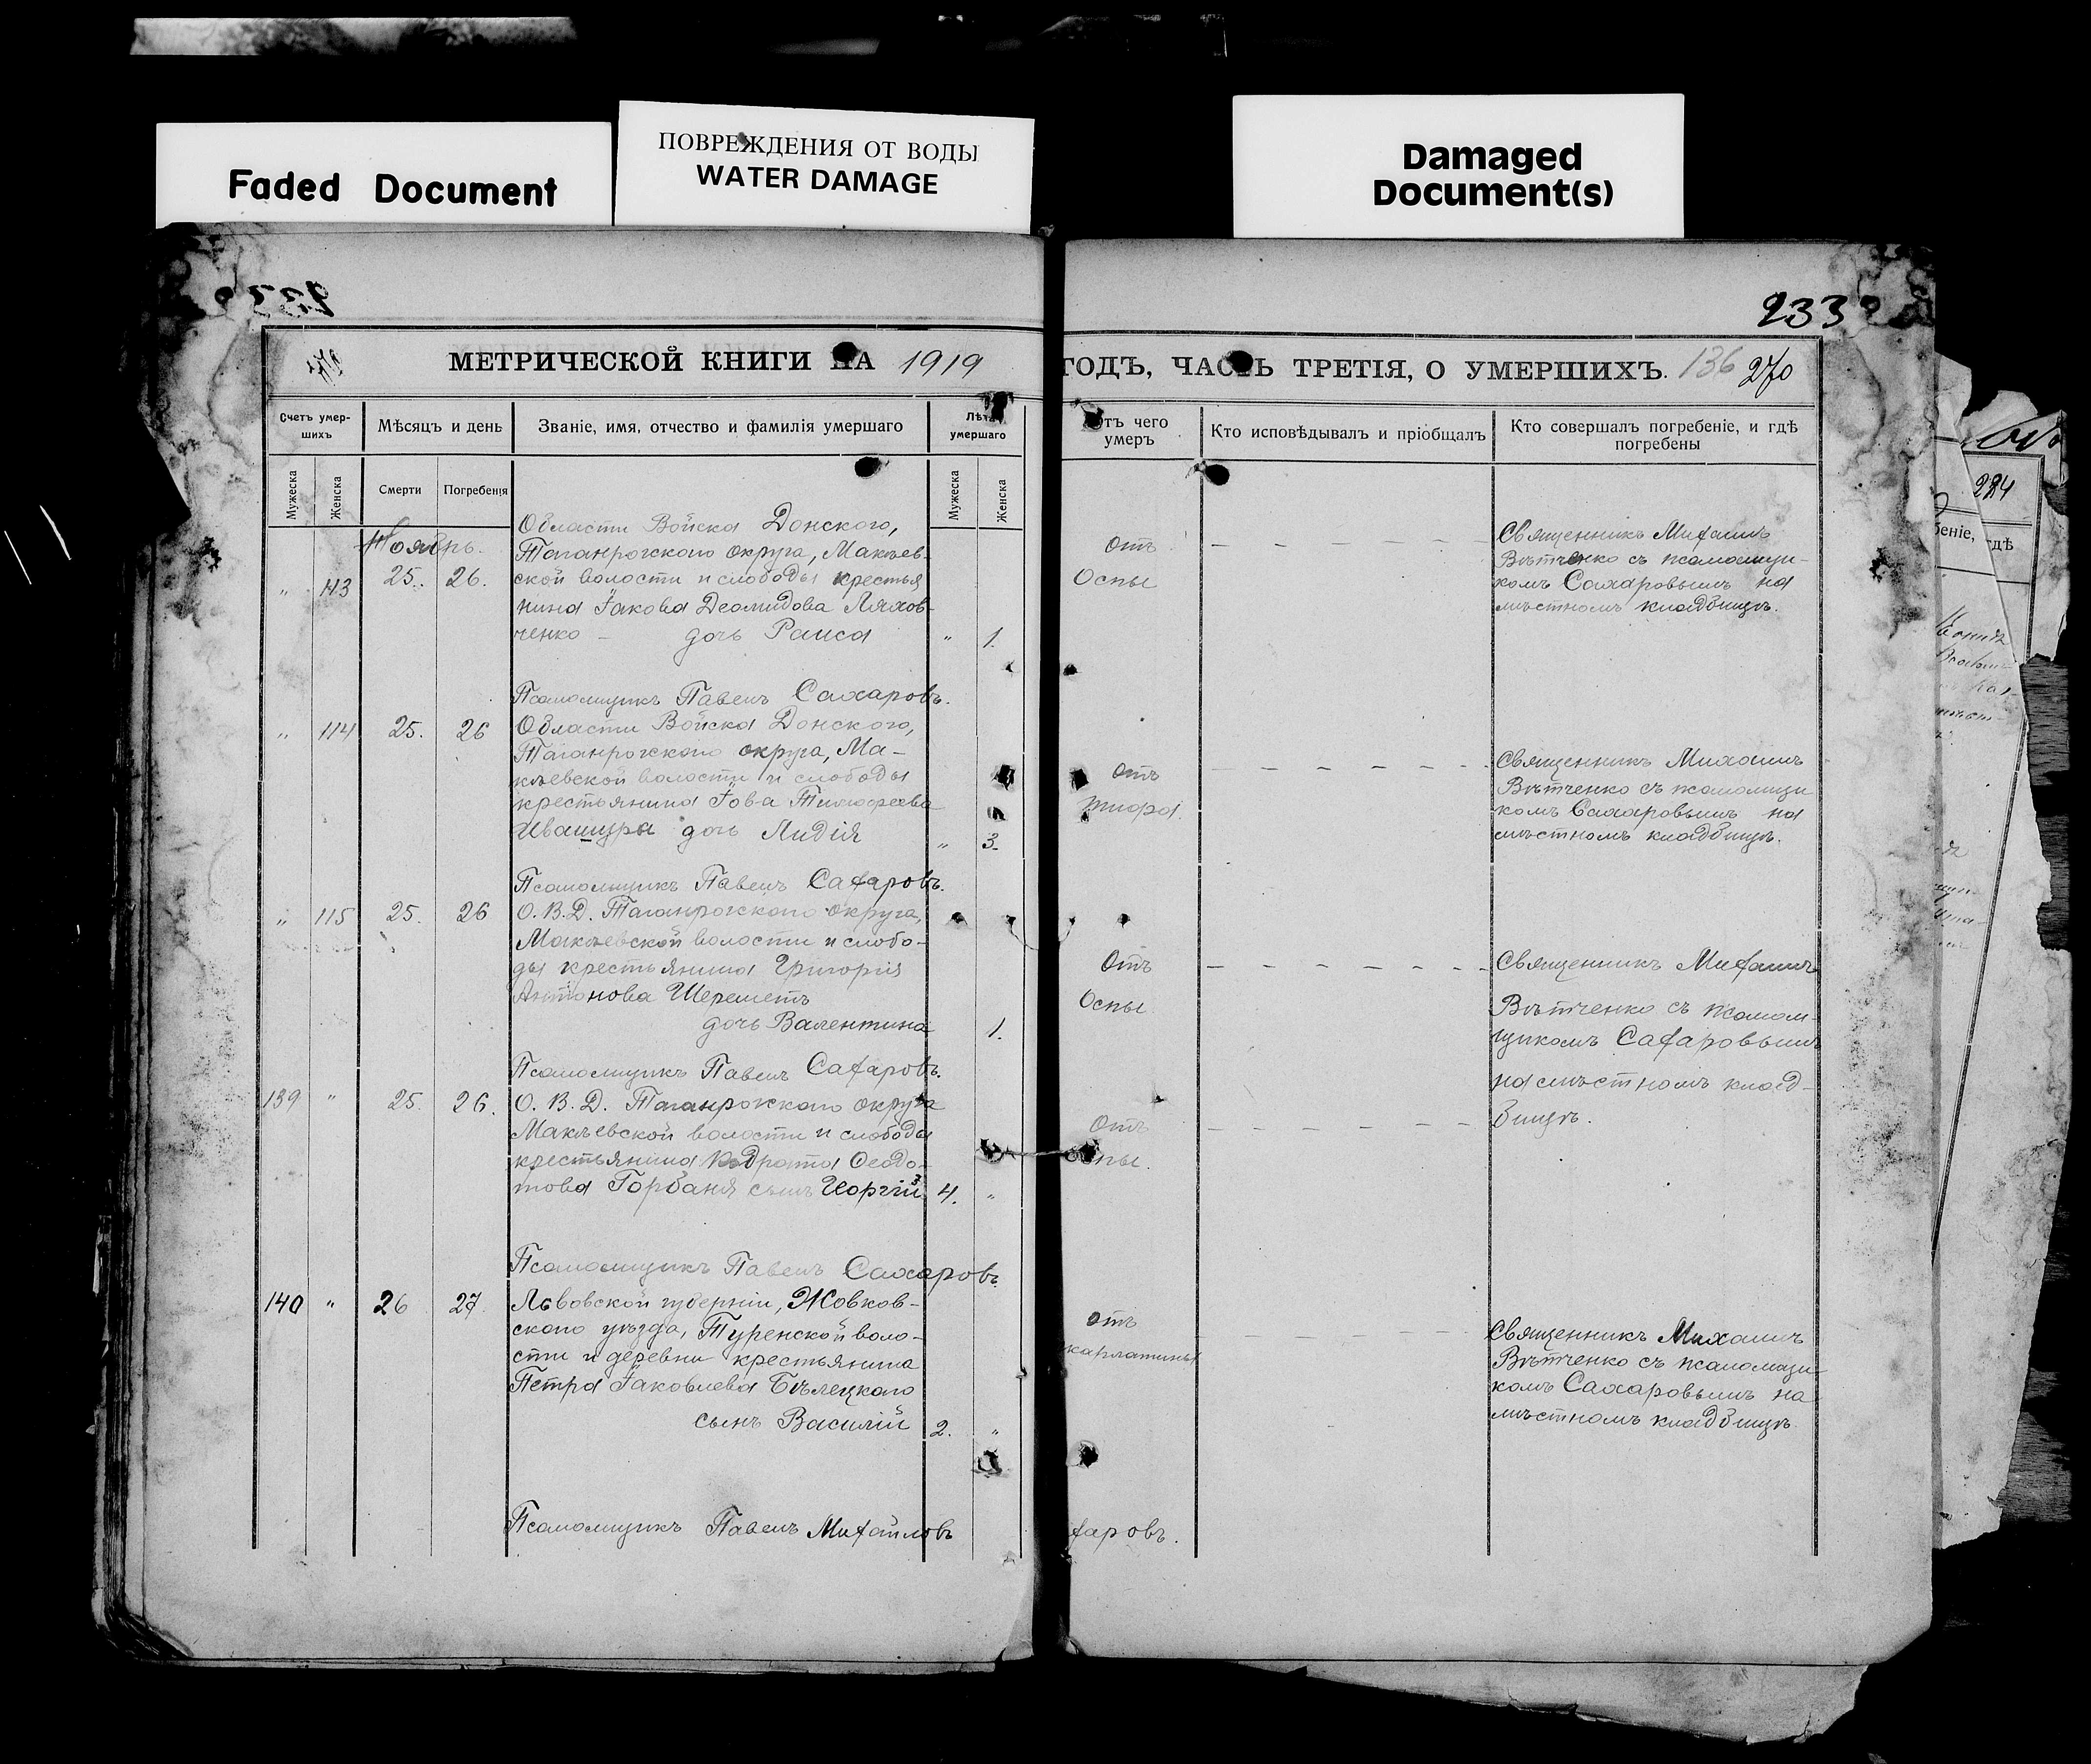 Faded Document
ПОВРЕЖДЕНИЯ ОТ ВОДЫ
WATER DAMAGE
Damaged
Document(s)
233
МЕТРИЧЕСКОЙ КНИГИ НА 1919
ГОДЪ, ЧАСТЬ ТРЕТІЯ, О УМЕРШИХЪ. 136 270
Счетъ умер-
шихъ
Мѣсяцъ и день
Званіе, имя, отчество и фамилія умершаго
Лѣта
умершаго
Отъ чего
умеръ
Кто исповѣдывалъ и пріобщалъ
Кто совершалъ погребеніе, и гдѣ
погребены
Мужеска
Женска
Смерти
Погребенія
Мужеска
Женска
Ноябрь.
„ 113 25. 26.
Области Войска Донского,
Таганрогскаго округа, Макѣев-
ской волости и слободы крестья
нина Іакова Деомидова Ляхов-
ченко – дочь Раиса „ 1.
Отъ
Оспы
Священникъ Михаилъ
Вѣтченко съ псаломщи-
комъ Сахаровымъ на
мѣстномъ кладбищѣ.
Псаломщикъ Павелъ Сахаровъ.
„ 114 25. 26
Области Войска Донского,
Таганрогскаго округа, Ма-
кѣевской волости и слободы
крестьянина Іова Тимофеева
Иващура дочь Лидія „ 3.
Отъ
тифа.
Священникъ Михаилъ
Вѣтченко съ псаломщи
комъ Сахаровымъ на
мѣстномъ кладбищѣ.
Псаломщикъ Павелъ Сахаровъ.
„ 115 25. 26
О. В. Д. Таганрогскаго округа,
Макѣевской волости и слобо-
ды крестьянина Григорія
Антонова Шереметъ
дочь Валентина 1.
Отъ
Оспы
Священникъ Михаилъ
Вѣтченко съ псалом-
щикомъ Сахаровымъ
на мѣстномъ клад-
бищѣ.
Псаломщикъ Павелъ Сахаровъ.
139 „ 25. 26.
О. В. Д. Таганрогскаго округа
Макѣевской волости и слободы
крестьянина Кодрата Ѳеодо-
това Горбаня сынъ Георгій 4. „
Отъ
Оспы.
Псаломщикъ Павелъ Сахаровъ
140 „ 26 27.
Львовской губерніи, Жовков-
скаго уѣзда, Туренской воло-
сти и деревни крестьянина
Петра Іаковлева Бѣлецкаго
сынъ Василій 2. „
отъ
скарлатины
Священникъ Михаилъ
Вѣтченко съ псаломщи-
комъ Сахаровымъ на
мѣстномъ кладбищѣ.
Псаломщикъ Павелъ Михайловъ
харовъ.
224
беніе,
гдѣ